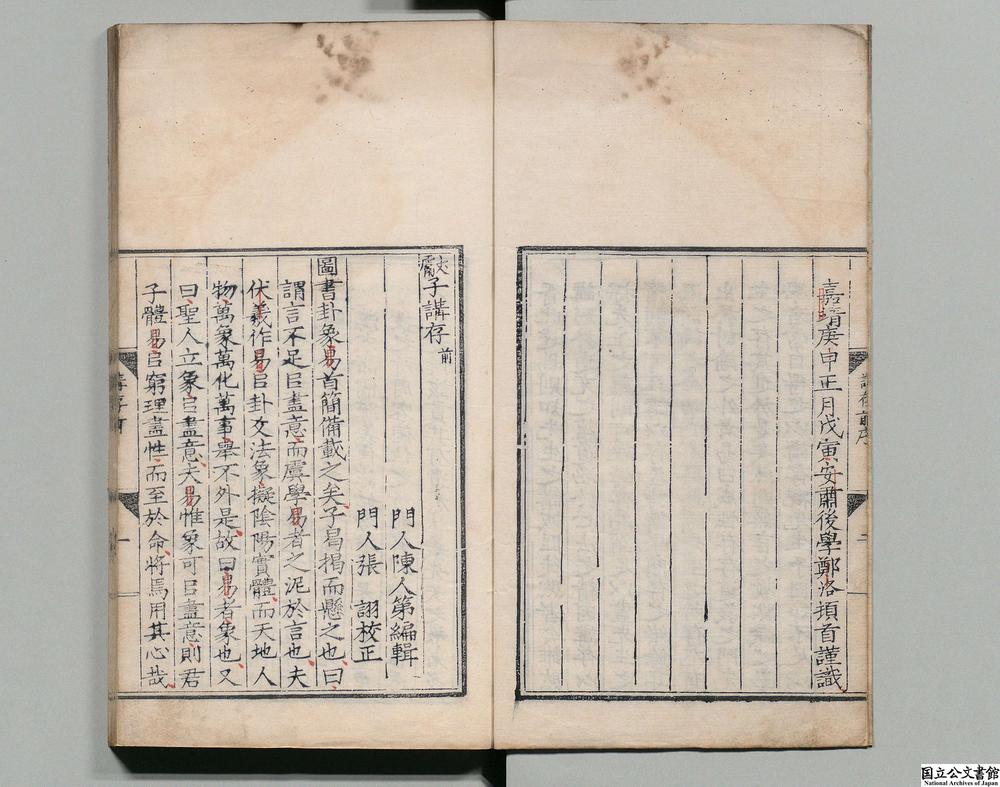 嘉靖庚申正月戊寅安肅後學鄭洛頓首謹識
子講存 前
門人陳人第編輯
門人張 詡校正
圖書卦象易首簡備載之矣子曷揭而懸之也曰
謂言不足㠯盡意而虞學易者之泥於言也夫
伏羲作易㠯卦爻法象擬陰陽實體而天地人
物萬象萬化萬事舉不外是故曰易者象也又
曰聖人立象㠯盡意夫易惟象可㠯盡意則君
子體易㠯窮理盡性而至於命將焉用其心哉
講存前
一
国立公文書館
National Archives of Japan